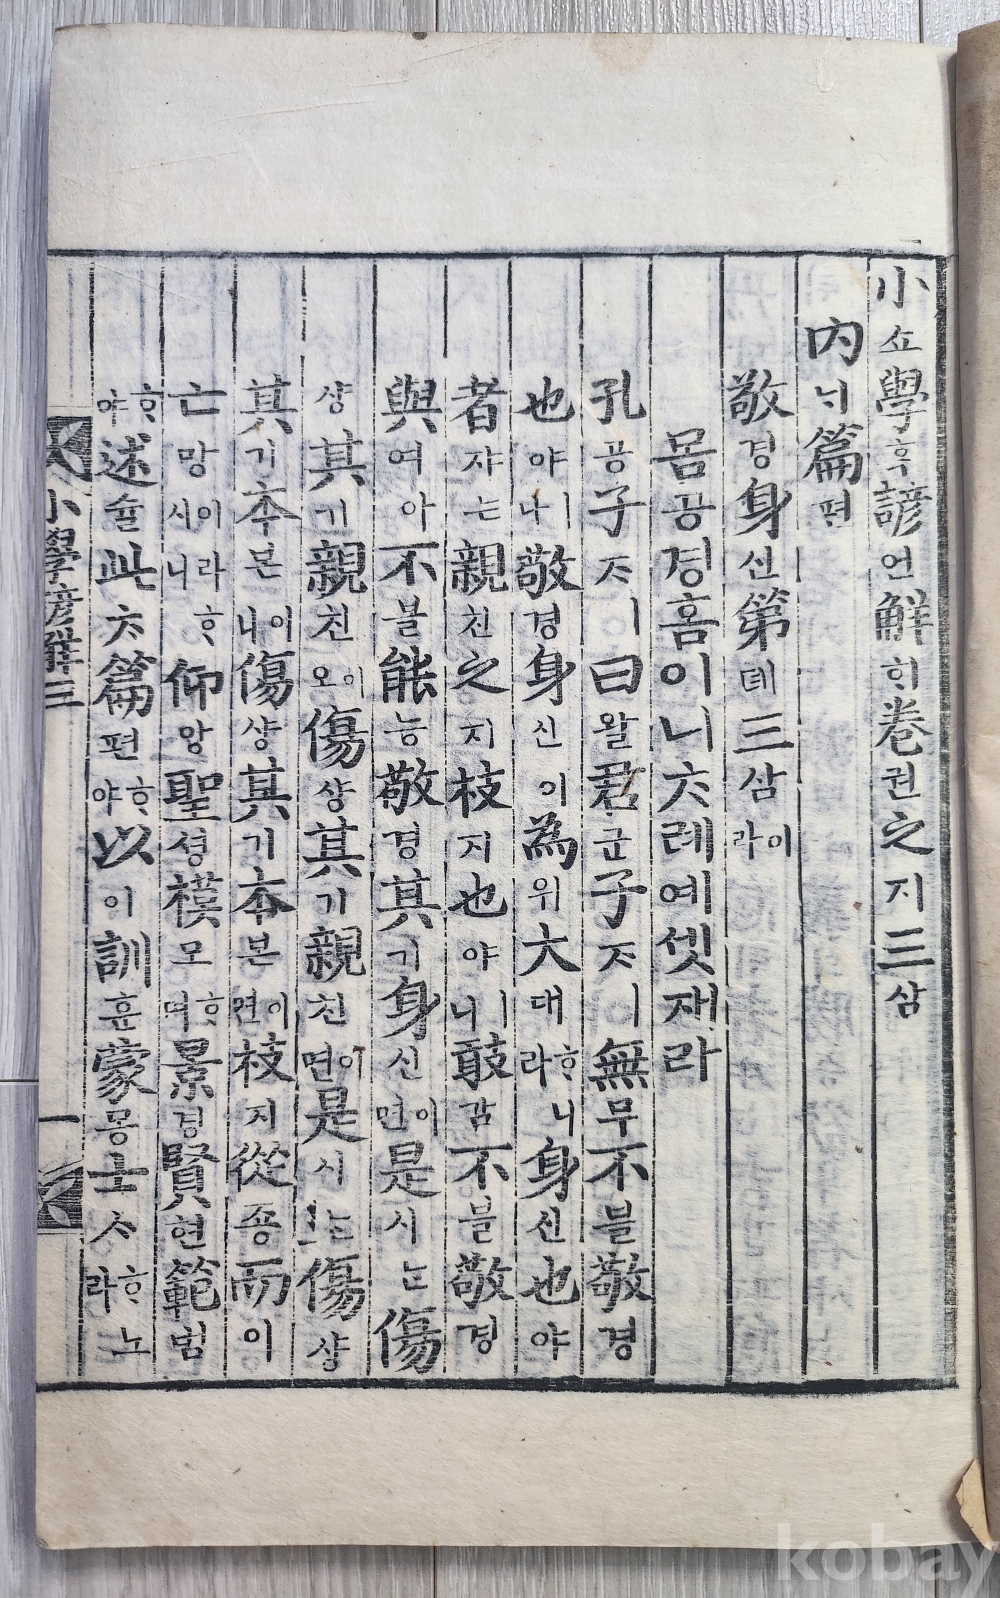 小쇼學ᄒᆞᆨ諺언解ᄒᆡ卷권之지三삼
內ᄂᆡ篇편
敬경身신第뎨三삼이라
몸공경홈이니ᄎᆞ례예셋재라
孔공子ᄌᆞㅣ曰왈君군子ᄌᆞㅣ無무不블敬경
也야ㅣ나敬경身신이為위大대ᄒᆞ니라身신也야
者쟈는親친之지枝지也야ㅣ니敢감不블敬경
與여아不블能능敬경其기身신이면是시ᄂᆞᆫ傷
샹其기親친이오傷샹其기親친이면是시ᄂᆞᆫ傷샹
其기本본이니傷샹其기本본이면枝지從죵而이
亡망이라ᄒᆞ시니仰앙聖셩模모ᄒᆞ며景경賢현範범
ᄒᆞ야述슐此ᄎᆞ篇편ᄒᆞ야以이訓훈蒙몽士ᄉᆞᄒᆞ노라
小學諺解三
一
kobay